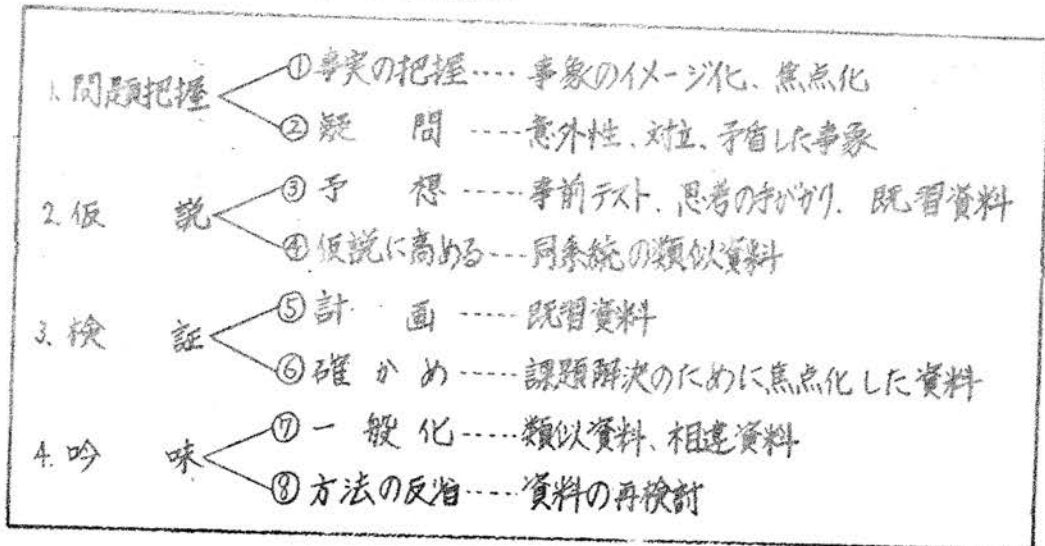 1. 問題把握
① 事実の把握‥‥ 事象のイメージ化、焦点化
② 疑問‥‥ 意外性、対立、矛盾した事象
2. 仮説
③ 予想‥‥ 事前テスト、思考の手がかり、既習資料
④ 仮説に高める‥‥ 同系統の類似資料
3. 検証
⑤ 計画‥‥ 既習資料
⑥ 確かめ‥‥ 課題解決のために焦点化した資料
4. 吟味
⑦ 一般化‥‥ 類似資料、相違資料
⑧ 方法の反省‥‥ 資料の再検討